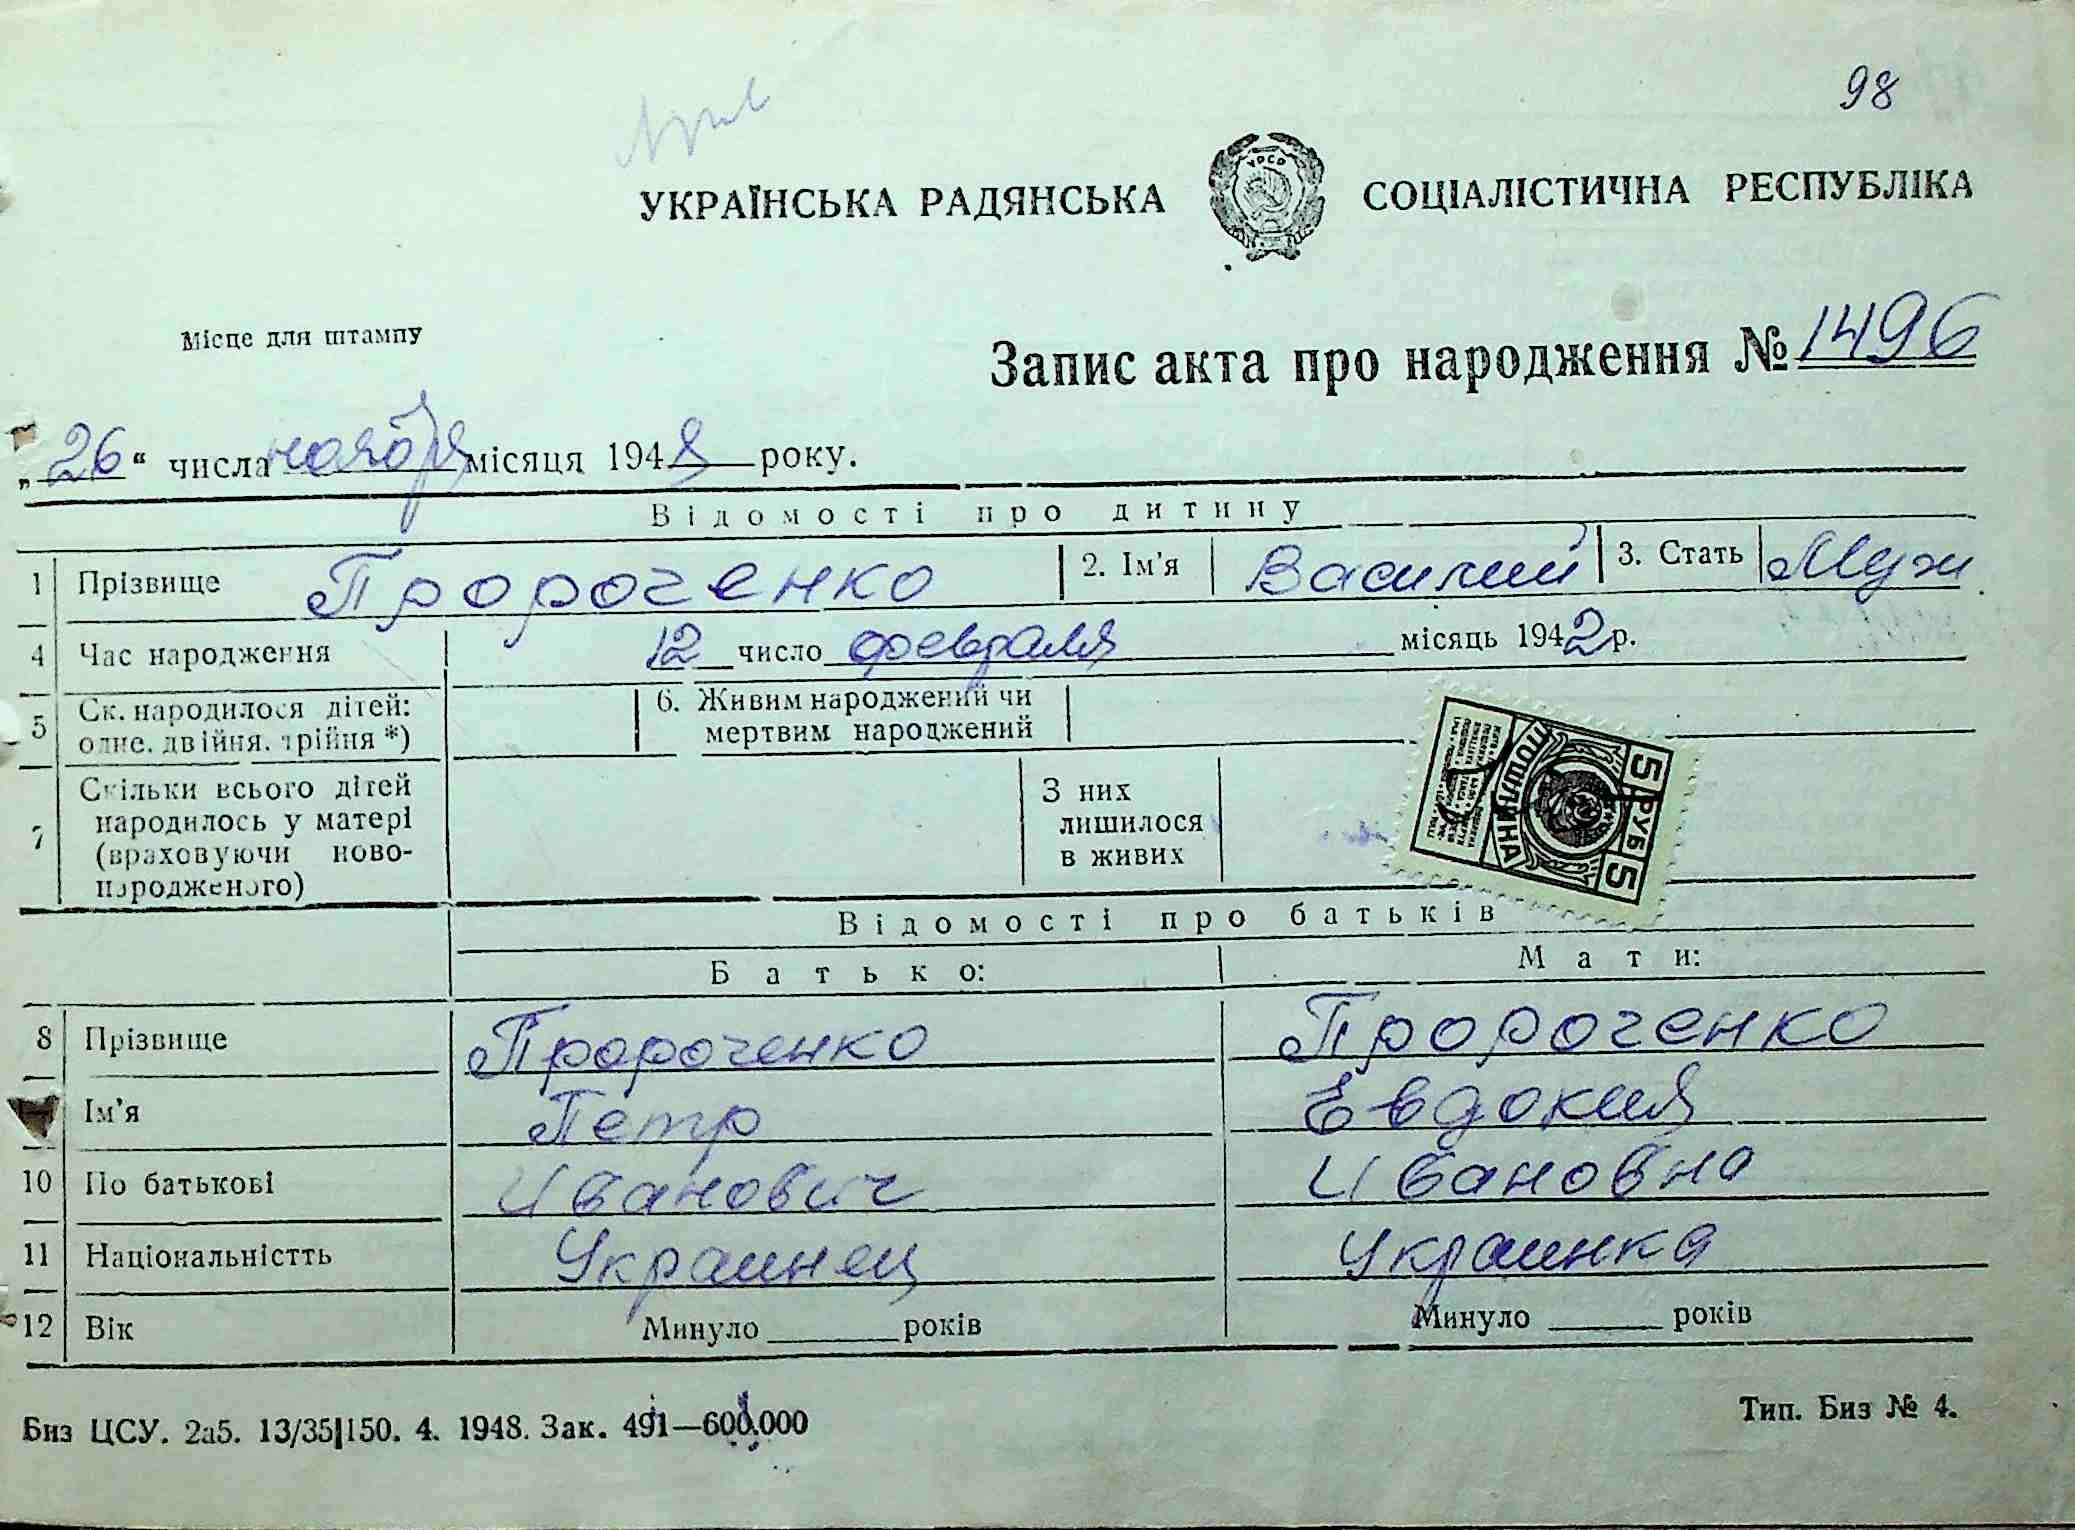 98
УКРАЇНСЬКА РАДЯНСЬКА СОЦІАЛІСТИЧНА РЕСПУБЛІКА
УРСР
Місце для штампу
Запис акта про народження № 1496
„26“ числа ноября місяця 1948 року.
Відомості про дитину
1 Прізвище Пророченко 2. Ім'я Василий 3. Стать Муж
4 Час народження 12 число февраля місяць 1942 р.
5 Ск. народилося дітей: одне, двійня, трійня *) 6. Живим народжений чи мертвим народжений
7 Скільки всього дітей народилось у матері (враховуючи ново-народженого) З них лишилося в живих
5 РУБ 5
ПОШЛИНА
Відомості про батьків
Батько: Мати:
8 Прізвище Пророченко Пророченко
Ім'я Петр Евдокия
10 По батькові Иванович Ивановна
11 Національністть Украинец Украинка
12 Вік Минуло років Минуло років
Биз ЦСУ. 2а5. 13/35|150. 4. 1948. Зак. 491—600.000 Тип. Биз № 4.